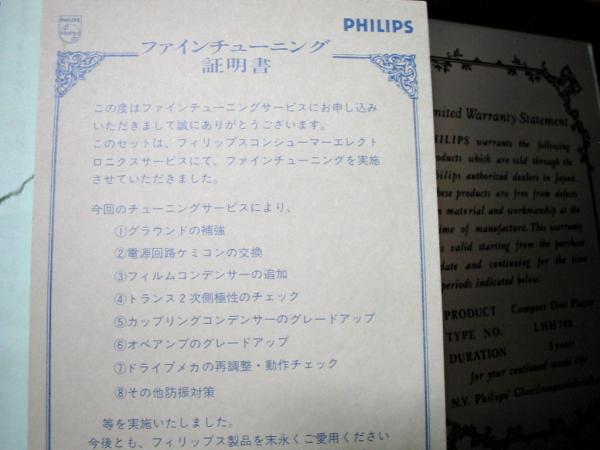 PHILIPS
PHILIPS
ファインチューニング
証明書
この度はファインチューニングサービスにお申し込み
いただきまして誠にありがとうございます。
このセットは、フィリップスコンシューマーエレクト
ロニクスサービスにて、ファインチューニングを実施
させていただきました。
今回のチューニングサービスにより、
①グラウンドの補強
②電源回路ケミコンの交換
③フィルムコンデンサーの追加
④トランス2次側極性のチェック
⑤カップリングコンデンサーのグレードアップ
⑥オペアンプのグレードアップ
⑦ドライブメカの再調整・動作チェック
⑧その他防振対策
等を実施いたしました。
今後とも、フィリップス製品を末永くご愛用ください
mited Warranty Statement
HILIPS warrants the following
oducts which are sold through the
hilips authorized dealers in Japan.
hese products are free from defects
n material and workmanship at the
ime of manufacture. This warranty
s valid starting from the purchase
date and continuing for the time
periods indicated below.
PRODUCT Compact Disc Player
TYPE NO. LHH700
DURATION years
for your continued music life
N.V. Philips' Gloeilampenfabrieken